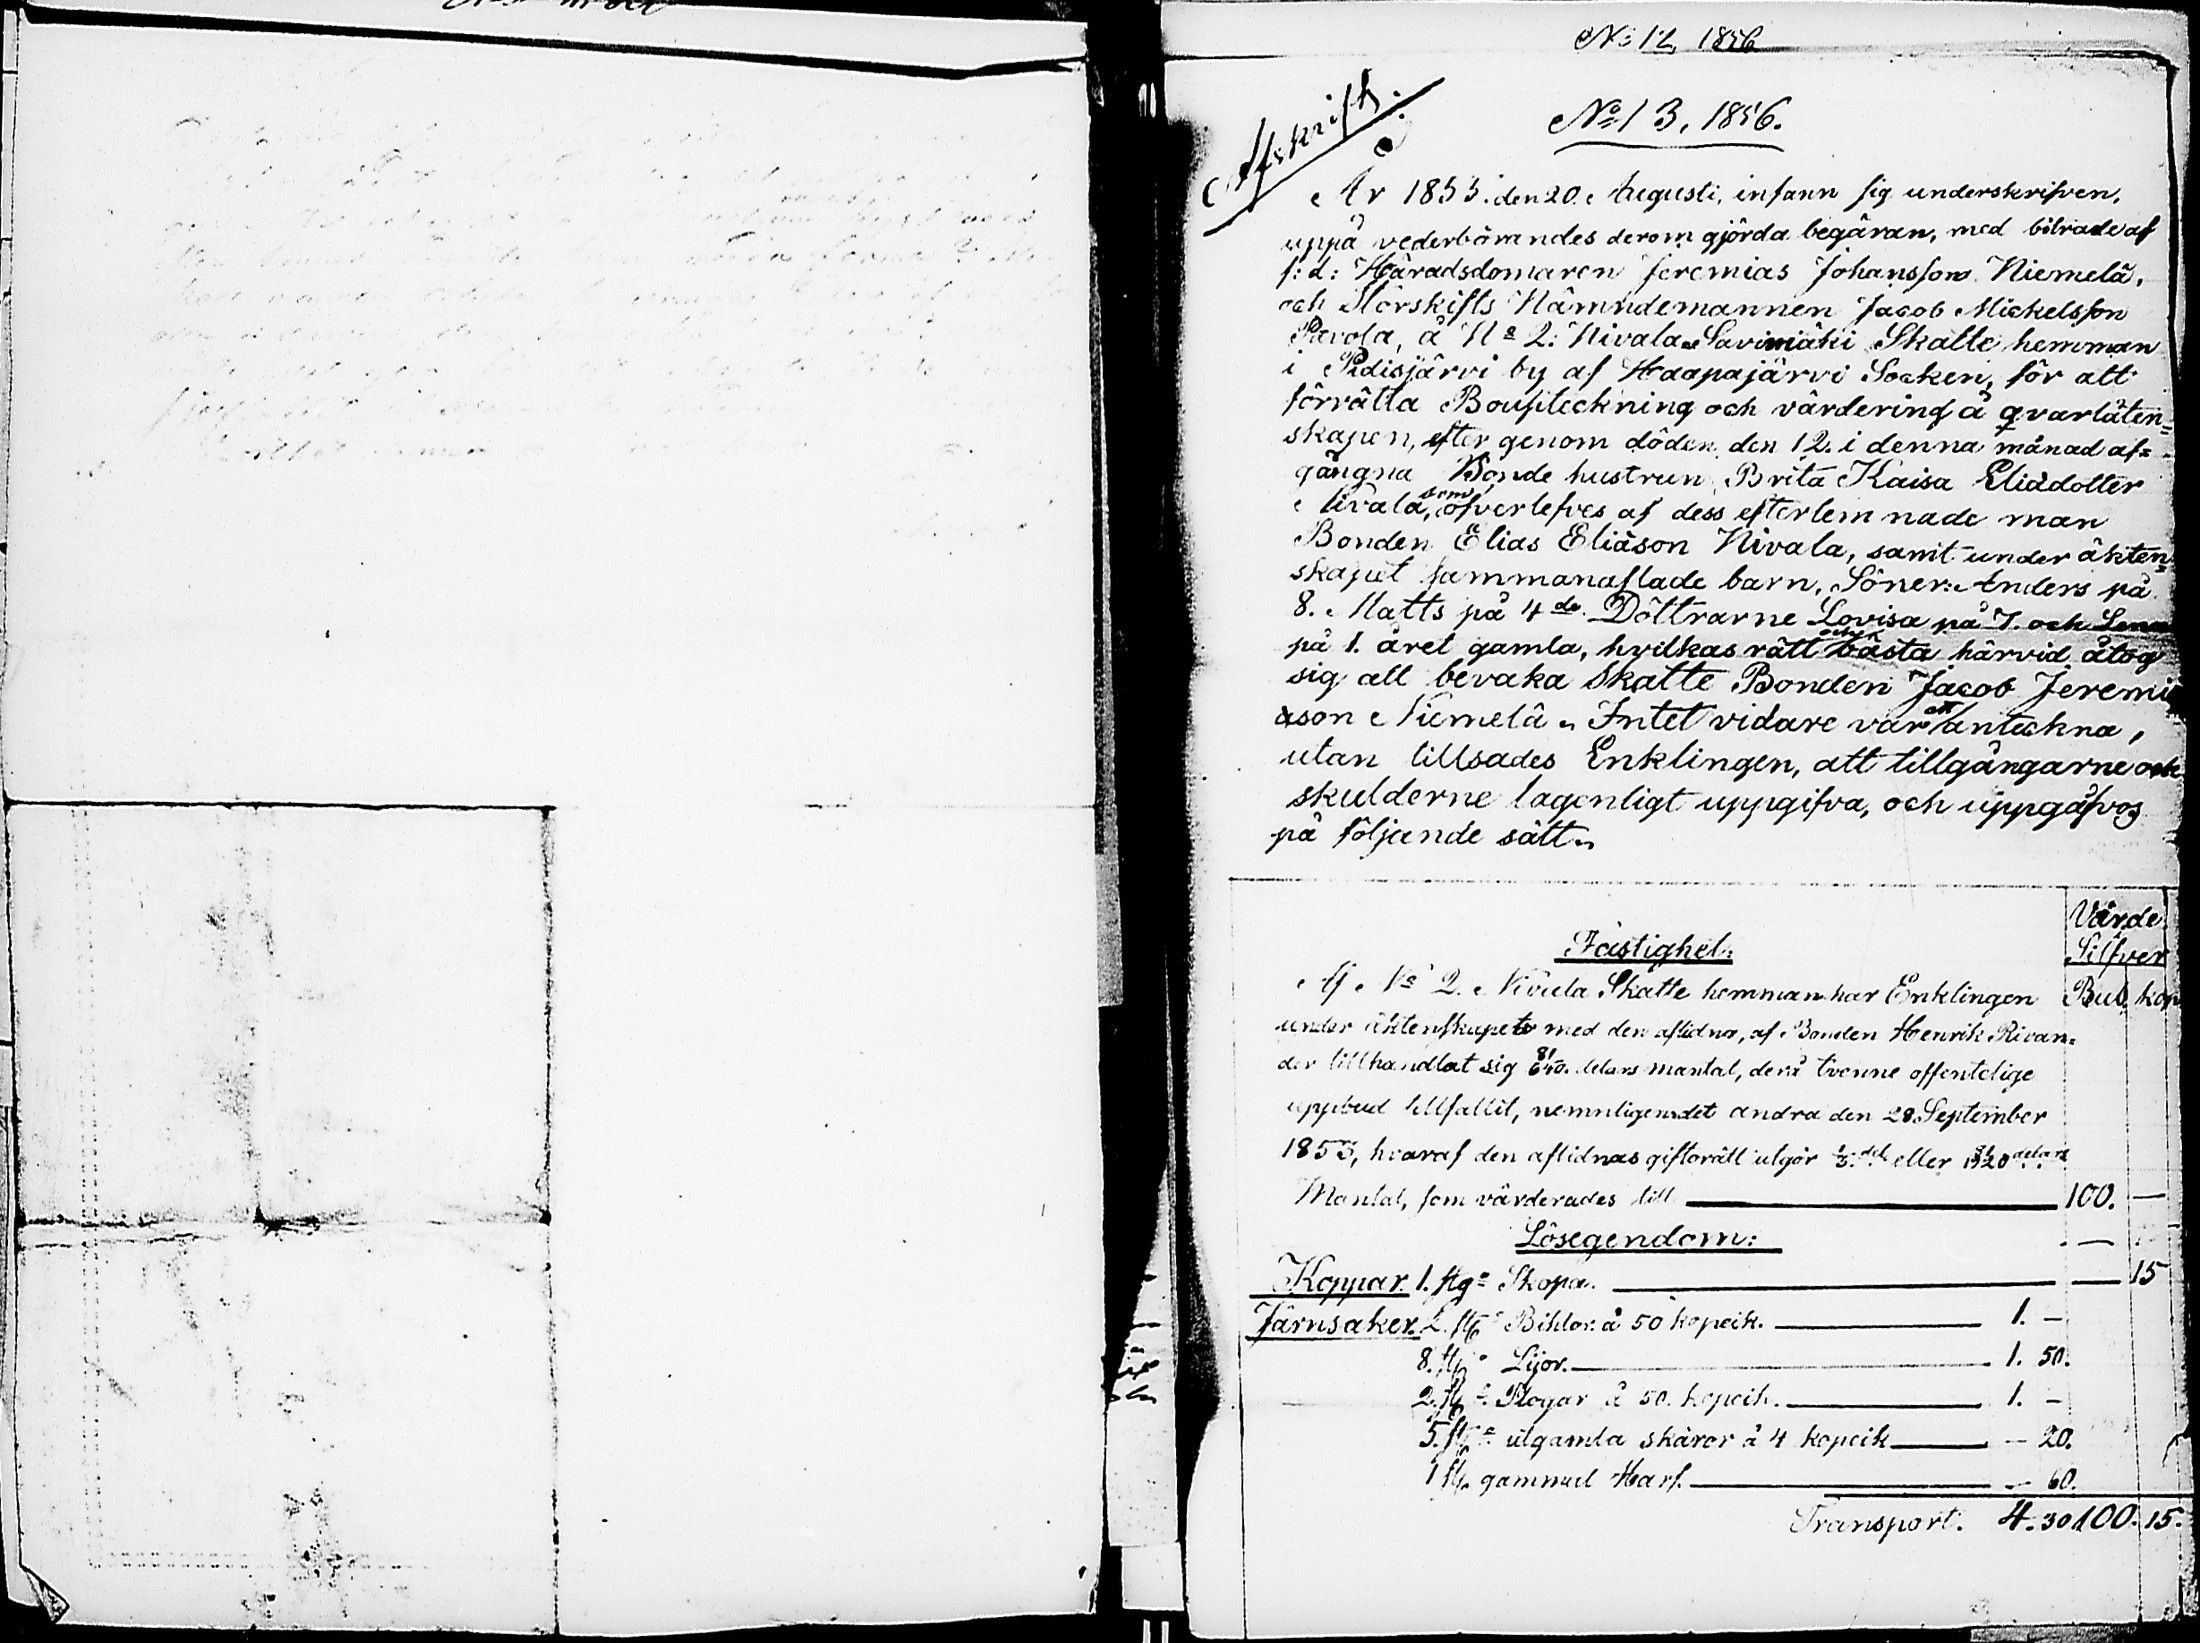 No 12, 1856
Afskrift.
No 13, 1856.
År 1855. den 20. Augusti, infann sig underskrifven,
uppå vederbörandes derom gjorda begäran, med biträde af
f: d: Häradsdomaren Jeremias Johansson Niemelä,
och Storskifts Nämndemannen Jacob Mickelsson
Pavola, å No 2: Nivala Savimäki Skatte hemman
i Pidisjärvi by af Haapajärvi Socken, för att
förrätta Boupteckning och värdering å qvarlåten=
skapen, efter genom döden den 12. i denna månad af=
gångna Bonde hustrun Brita Kaisa Eliädotter
Nivala, som öfverlefves af dess efterlemnade man
Bonden Elias Eliäson Nivala, samt under äkten=
skapet sammanaflade barn, Söner: Anders på
8. Matts på 4de Döttrarne Lovisa på 7. och Lena
på 1. året gamla, hvilkas rätt och bästa härvid åtog
sig att bevaka Skatte Bonden Jacob Jeremi
ason Niemelä. Intet vidare var att anteckna,
utan tillsades Enklingen, att tillgångarne och
skulderne lagenligt uppgifva, och uppgåfvos
på följande sätt.
Värde
Silfver
Fastighet:
Af No 2. Nivala Skatte hemman har Enklingen Rub. kop
under äktenskapet med den aflidna, af Bonden Henrik Rivan=
der tillhandlat sig 81/640. delars mantal, derå tvenne offentelige
uppbud tillfallit, nemnligen det andra den 28 September
1853, hvaraf den aflidnas giftorätt utgör 1/3. del eller 81/1920 delars
Mantal, som värderades till 100. —
Lösegendom: — .
Koppar. 1. stg Skopa. — 15
Järnsaker. 2. st Bihlor. à 50 kopeik. 1. —
8. st Lijor. 1. 50.
2. st Plogar à 50. kopeik. 1. —
5. st utgamla skäror à 4 kopeik — 20.
1 st. gammal Harf. — 60.
Transport. 4. 30 100. 15.